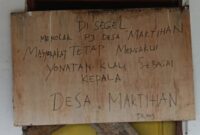 DI SEGEL
MENOLAK PJ DESA MAKTIHAN
MASYARAKAT TETAP MENGAKUI
YONATAN KLAU SEBAGAI
KEPALA
DESA. MAKTIHAN